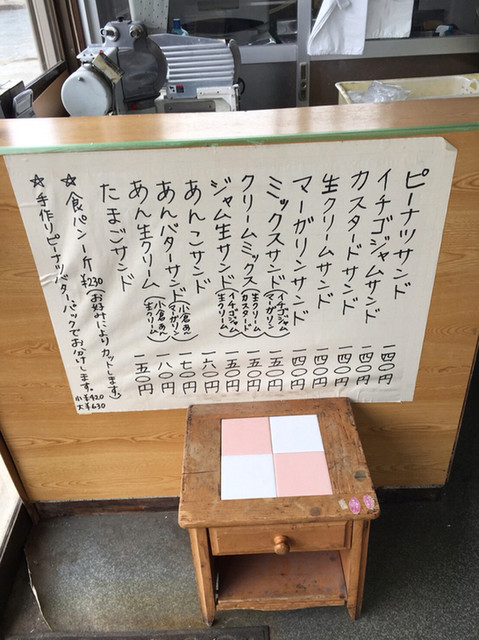 ピーナツサンド 一四〇円
イチゴジャムサンド 一四〇円
カスタードサンド 一四〇円
生クリームサンド 一四〇円
マーガリンサンド 一四〇円
ミックスサンド(イチゴジャム マーガリン) 一五〇円
クリームミックス(生クリーム カスタード) 一五〇円
ジャム生サンド(イチゴジャム 生クリーム) 一五〇円
あんこサンド 一六〇円
あんバターサンド(小倉あん マーガリン) 一七〇円
あん生クリーム(小倉あん 生クリーム) 一八〇円
たまごサンド 一五〇円
☆食パン一斤¥230(お好みによりカットします)
☆手作りピーナツバターパックでお分けします。小¥420 大¥630